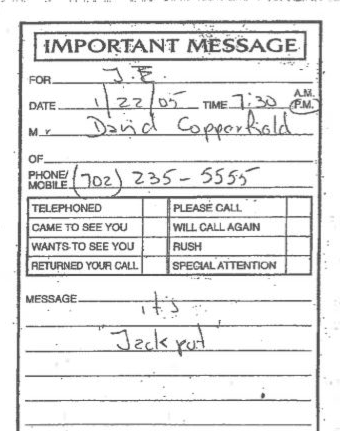 IMPORTANT MESSAGE
FOR J.E.
DATE 1/22/05 TIME 7:30 A.M. P.M.
M r David Copperfield
OF
PHONE/MOBILE (702) 235-5555
TELEPHONED PLEASE CALL
CAME TO SEE YOU WILL CALL AGAIN
WANTS TO SEE YOU RUSH
RETURNED YOUR CALL SPECIAL ATTENTION
MESSAGE it's
"Jackpot